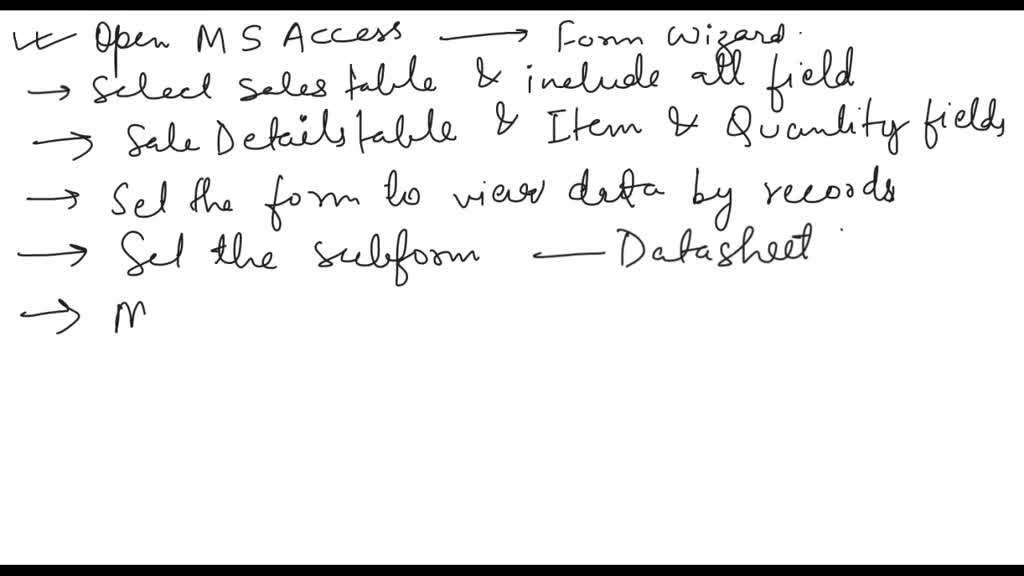 Open MS Access → Form Wizard.
→ Select Sales table & include all field
→ Sale Details table & Item & Quantity fields
→ Set the form to view data by records
→ Set the subform — Datasheet
→ M